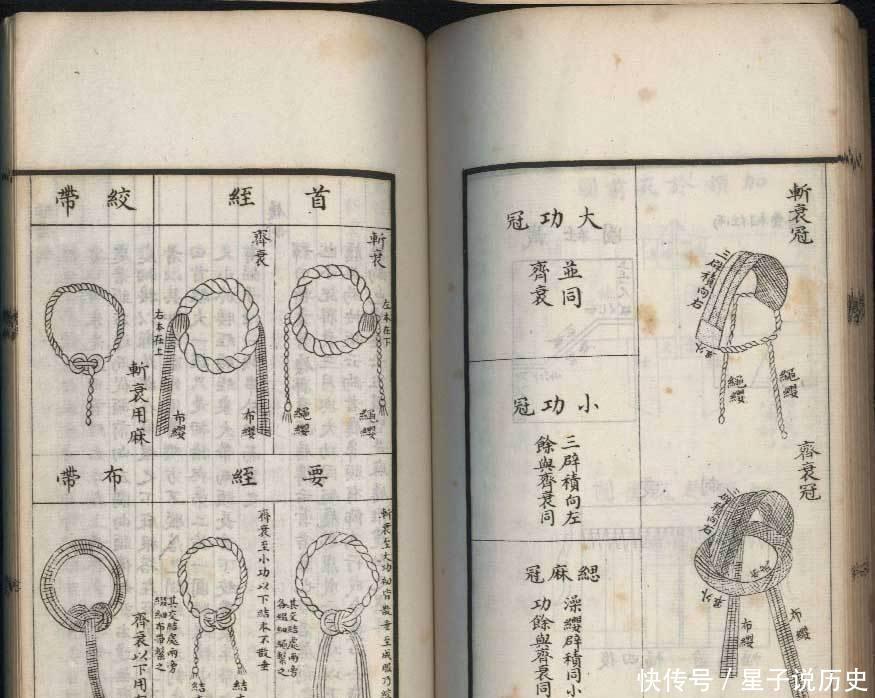 斬衰冠
三辟積向右
繩纓
繩纓
齊衰冠
三辟積向右
布纓
布纓
大功冠
並同
齊衰
小功冠
三辟積向左
餘與齊衰同
緦麻冠
澡纓辟積同小
功餘與齊衰同
首絰
斬衰
左本在下
繩纓
繩纓
齊衰
右本在上
布纓
布纓
絞帶
斬衰用麻
要絰
斬衰至大功初皆散垂至成服乃絞
其交結處兩旁
各綴細繩繫之
齊衰至小功以下結本不散垂
其交結處兩旁
綴細布帶繫之
結
結
布帶
齊衰以下用
快传号 / 星子说历史